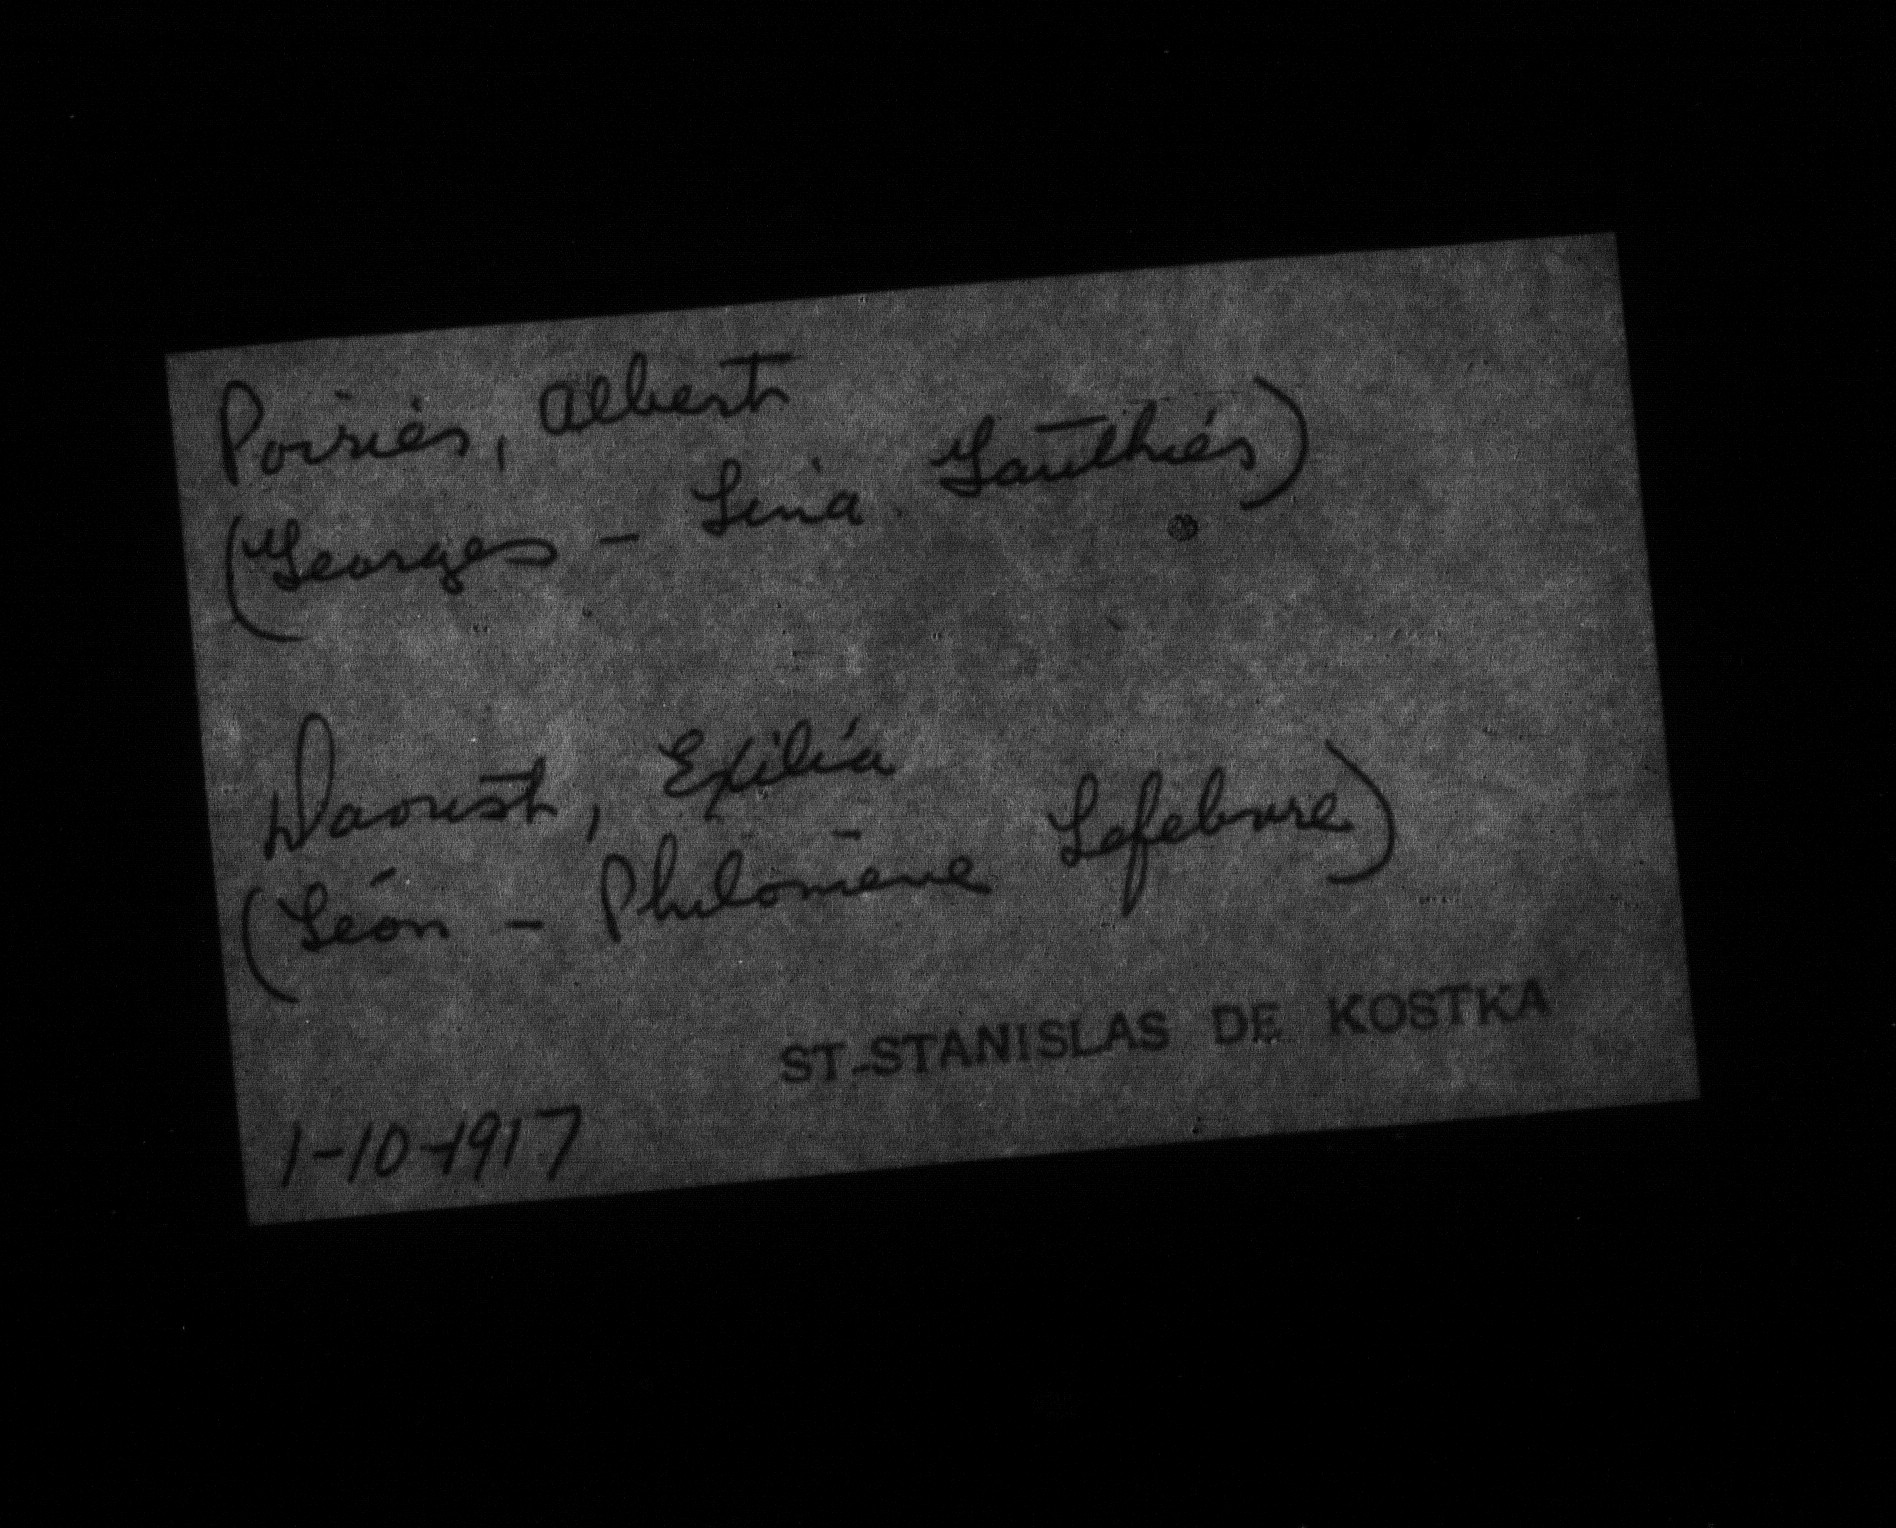 Poirier, Albert
(Georges - Lina Gauthier)
Daoust, Exilia
(Léon - Philomène Lefebvre)
ST-STANISLAS DE KOSTKA
1-10-1917